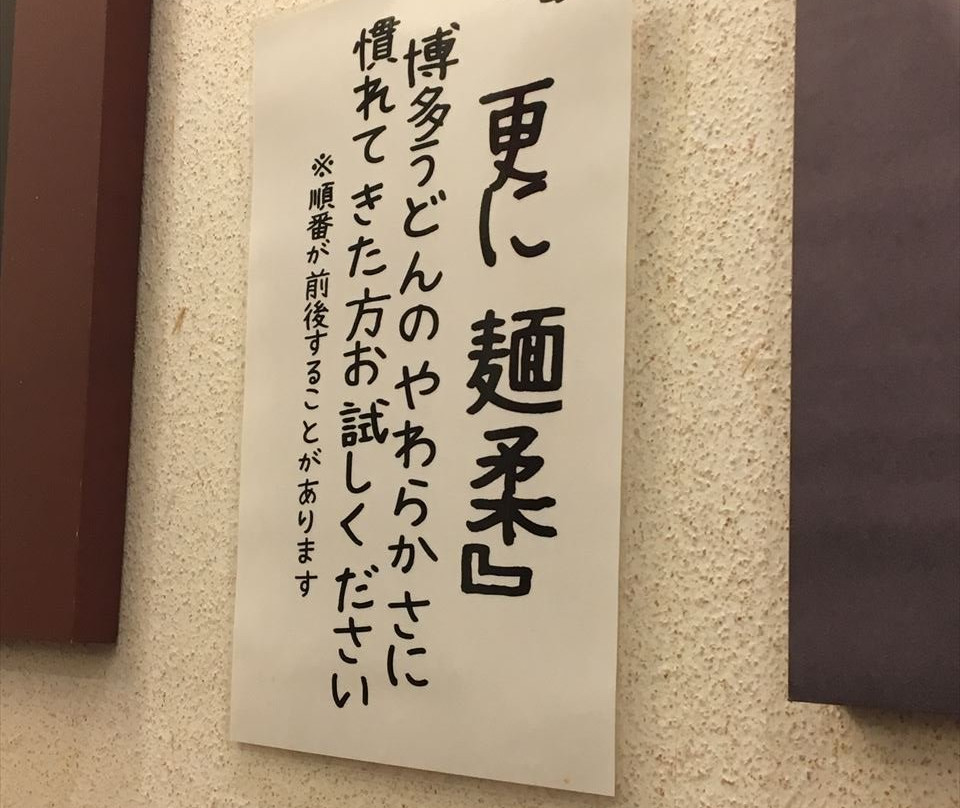 更に 麺柔』
博多うどんのやわらかさに
慣れてきた方お試しください
※順番が前後することがあります